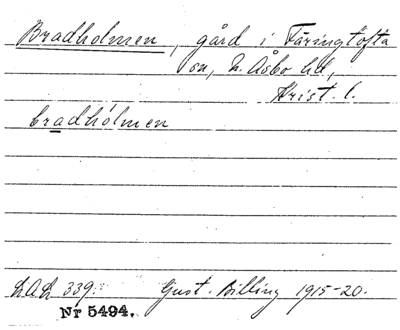 Bradholmen, gård i Färingtofta
sn, N. Åsbo hd,
Krist. l.
bradhólmen
LAL 339. Gust. Billing 1915-20.
Nr 5494.